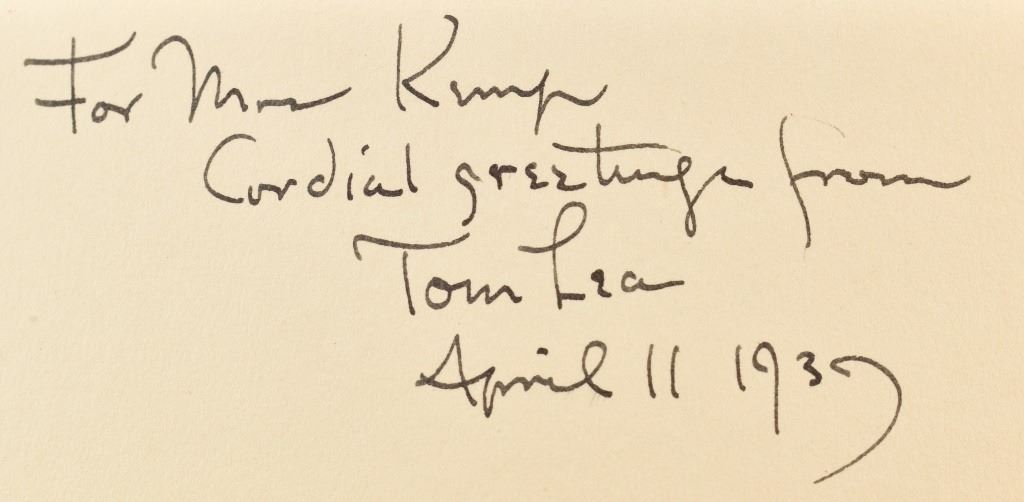 For Mrs Kemp
Cordial greetings from
Tom Lea
April 11 1937